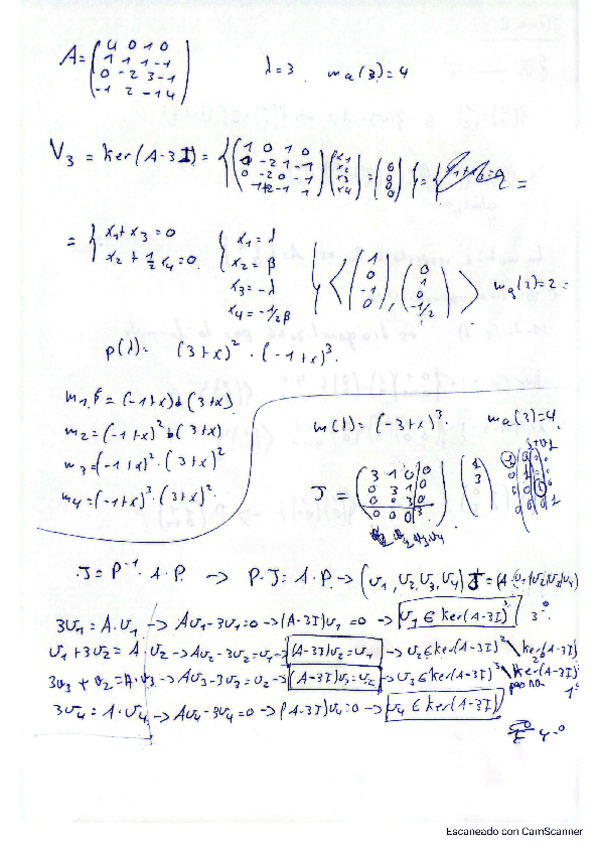 A = ( 4 0 1 0 / 1 1 1 -1 / 0 -2 3 -1 / -1 2 -1 4 )    λ=3    ma(3)=4
V3 = ker(A-3I) = { ( 1 0 1 0 / 1 -2 1 -1 / 0 -2 0 -1 / -1 +2 -1 1 ) ( x1 / x2 / x3 / x4 ) = ( 0 / 0 / 0 / 0 ) } =
= { x1 + x3 = 0 / x2 + 1/2 x4 = 0.    { x1 = λ / x2 = β / x3 = -λ / x4 = -1/2 β    < ( 1 / 0 / -1 / 0 ), ( 0 / 1 / 0 / -1/2 ) >    mg(3)=2 =
p(λ) = (3+x)² · (-1+x)³.
m1 = (-1+x) (3+x)
m2 = (-1+x)² (3+x)
m3 = (-1+x)² · (3+x)²
m4 = (-1+x)³ · (3+x)².
m(λ) = (-3+x)³    ma(3)=4.
J = ( 3 1 0 0 / 0 3 1 0 / 0 0 3 0 / 0 0 0 3 )
J = P⁻¹ · A · P. → P · J = A · P → (v1, v2, v3, v4) J = (A v1 | v2 | v3 | v4)
3v1 = A·v1 → Av1-3v1=0 → (A-3I)v1 = 0 → v1 ∈ ker(A-3I)    3º
v1+3v2 = A·v2 → Av2-3v2=v1 → (A-3I)v2=v1 → v2 ∈ ker(A-3I)² \ ker(A-3I)    2º
3v3+v2 = A·v3 → Av3-3v3=v2 → (A-3I)v3=v2 → v3 ∈ ker(A-3I)³ \ ker(A-3I)²    1º
3v4 = A·v4 → Av4-3v4=0 → (A-3I)v4=0 → v4 ∈ ker(A-3I)
4º
Escaneado con CamScanner